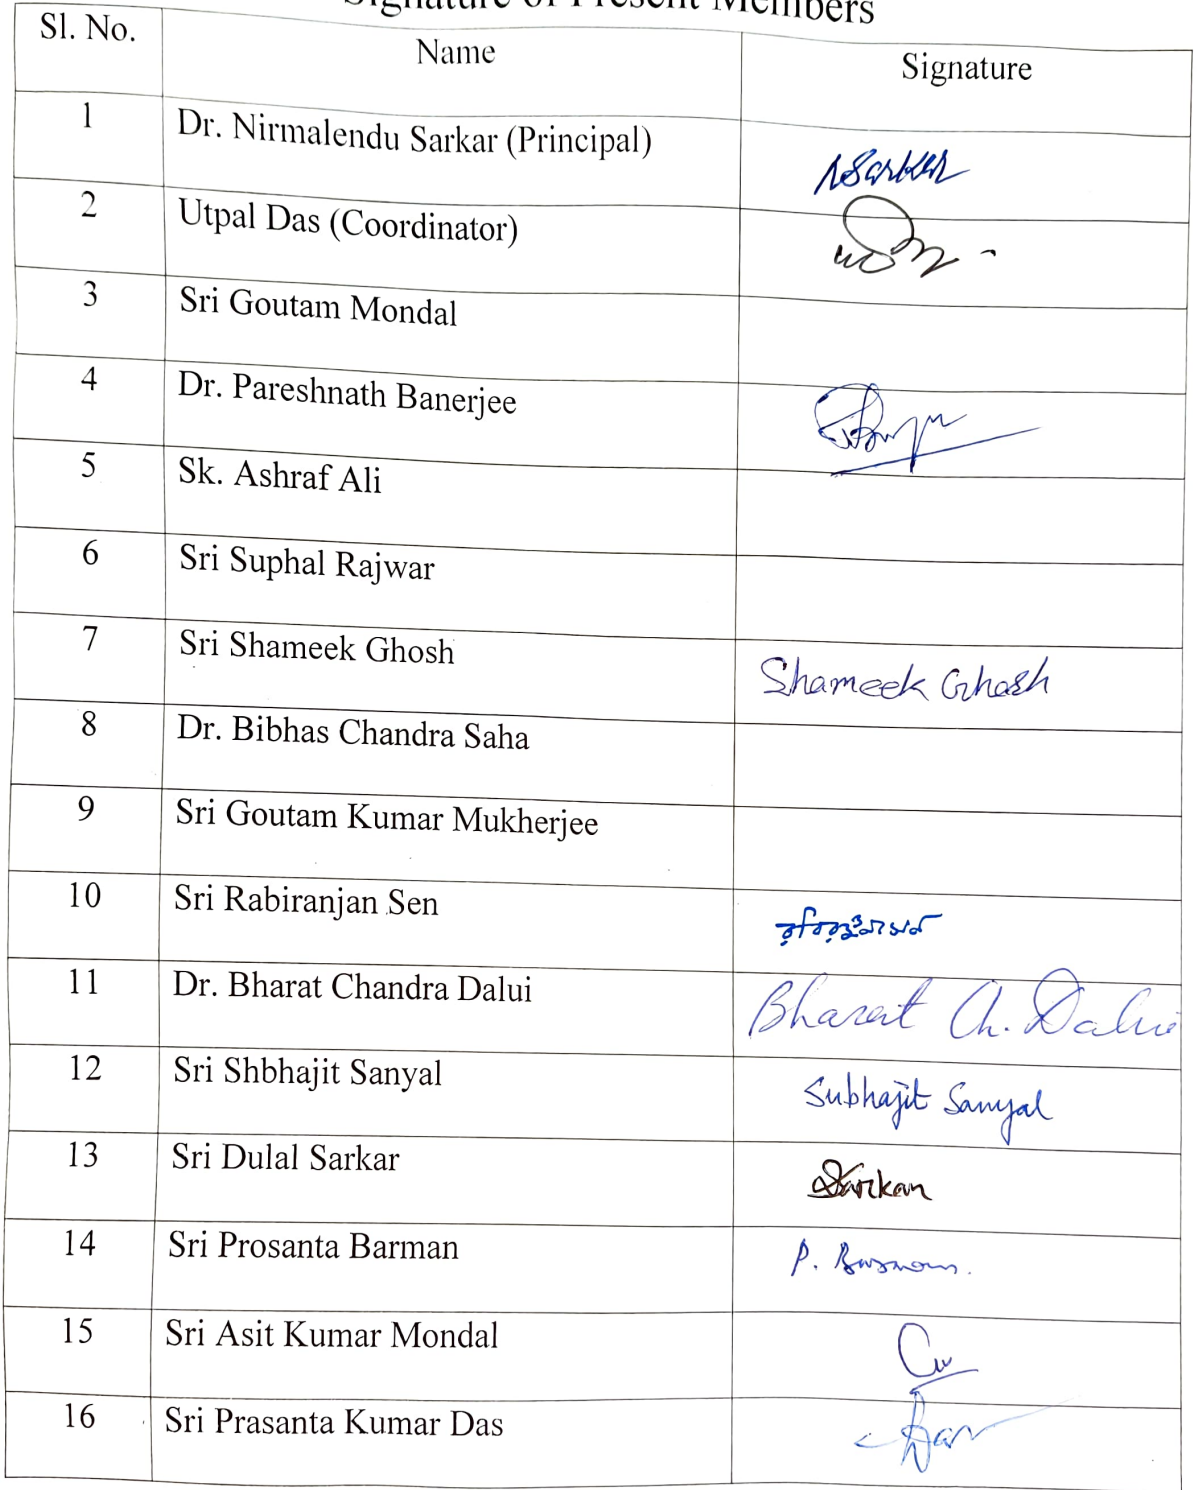 Signature of Present Members
Sl. No. Name Signature
1 Dr. Nirmalendu Sarkar (Principal) NSarkar
2 Utpal Das (Coordinator)
3 Sri Goutam Mondal
4 Dr. Pareshnath Banerjee
5 Sk. Ashraf Ali
6 Sri Suphal Rajwar
7 Sri Shameek Ghosh Shameek Ghosh
8 Dr. Bibhas Chandra Saha
9 Sri Goutam Kumar Mukherjee
10 Sri Rabiranjan Sen রবিরঞ্জন সেন
11 Dr. Bharat Chandra Dalui Bharat Ch. Dalui
12 Sri Shbhajit Sanyal Subhajit Sanyal
13 Sri Dulal Sarkar DSarkar
14 Sri Prosanta Barman P. Barman.
15 Sri Asit Kumar Mondal
16 Sri Prasanta Kumar Das